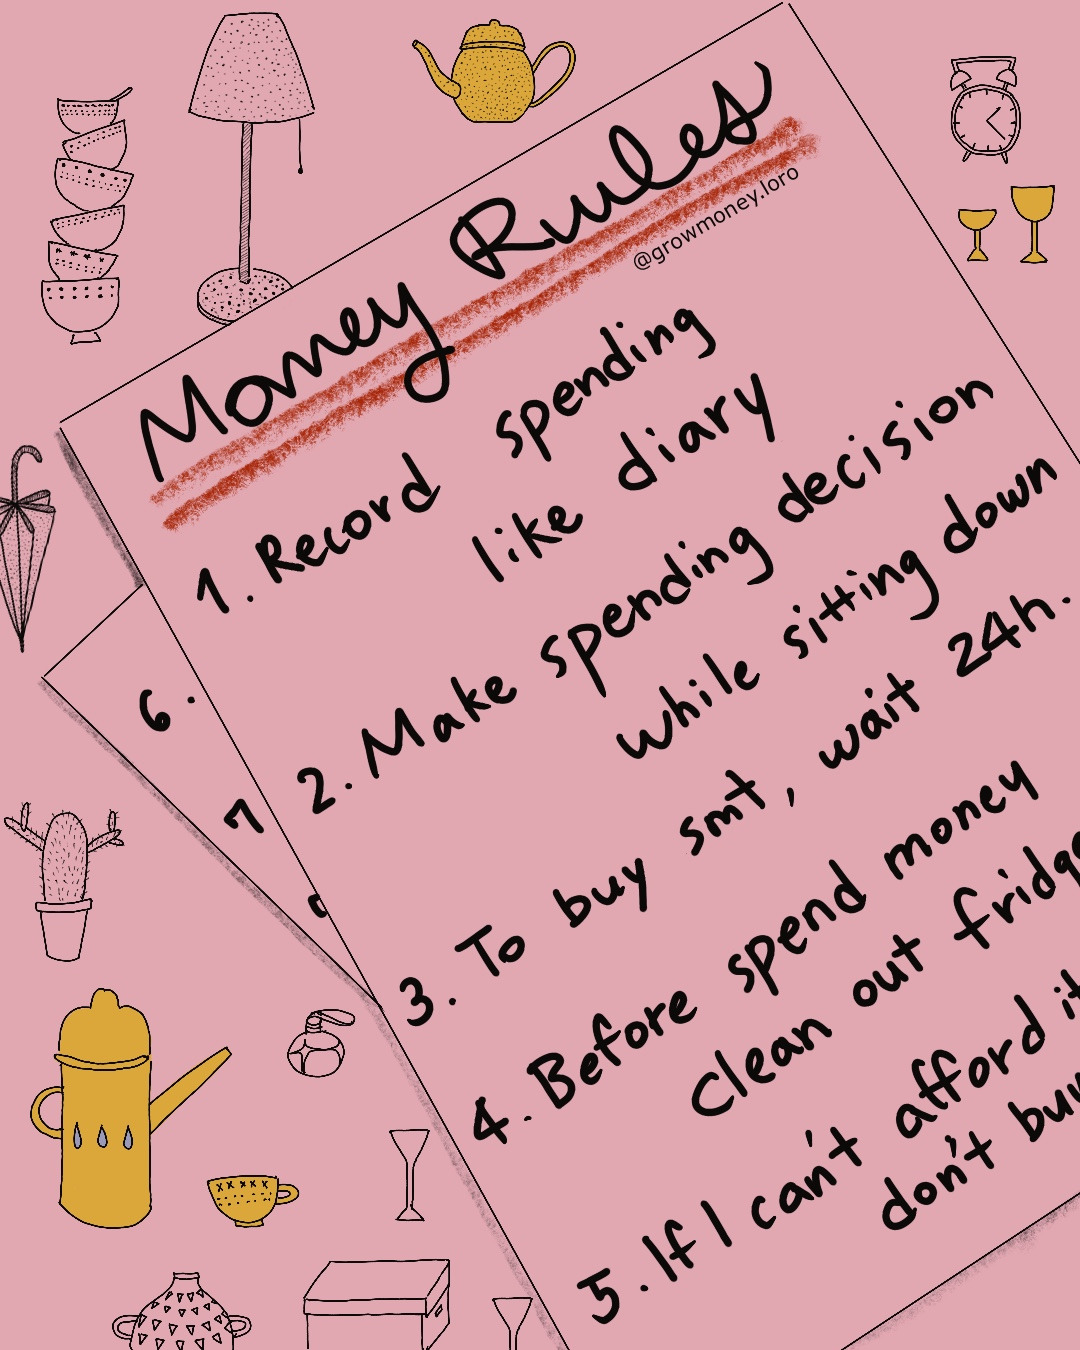 Money Rules
@growmoney.loro
1. Record spending
like diary
2. Make spending decision
while sitting down
3. To buy smt, wait 24h.
4. Before spend money
Clean out fridge
5. If I can't afford it
don't buy
6.
7